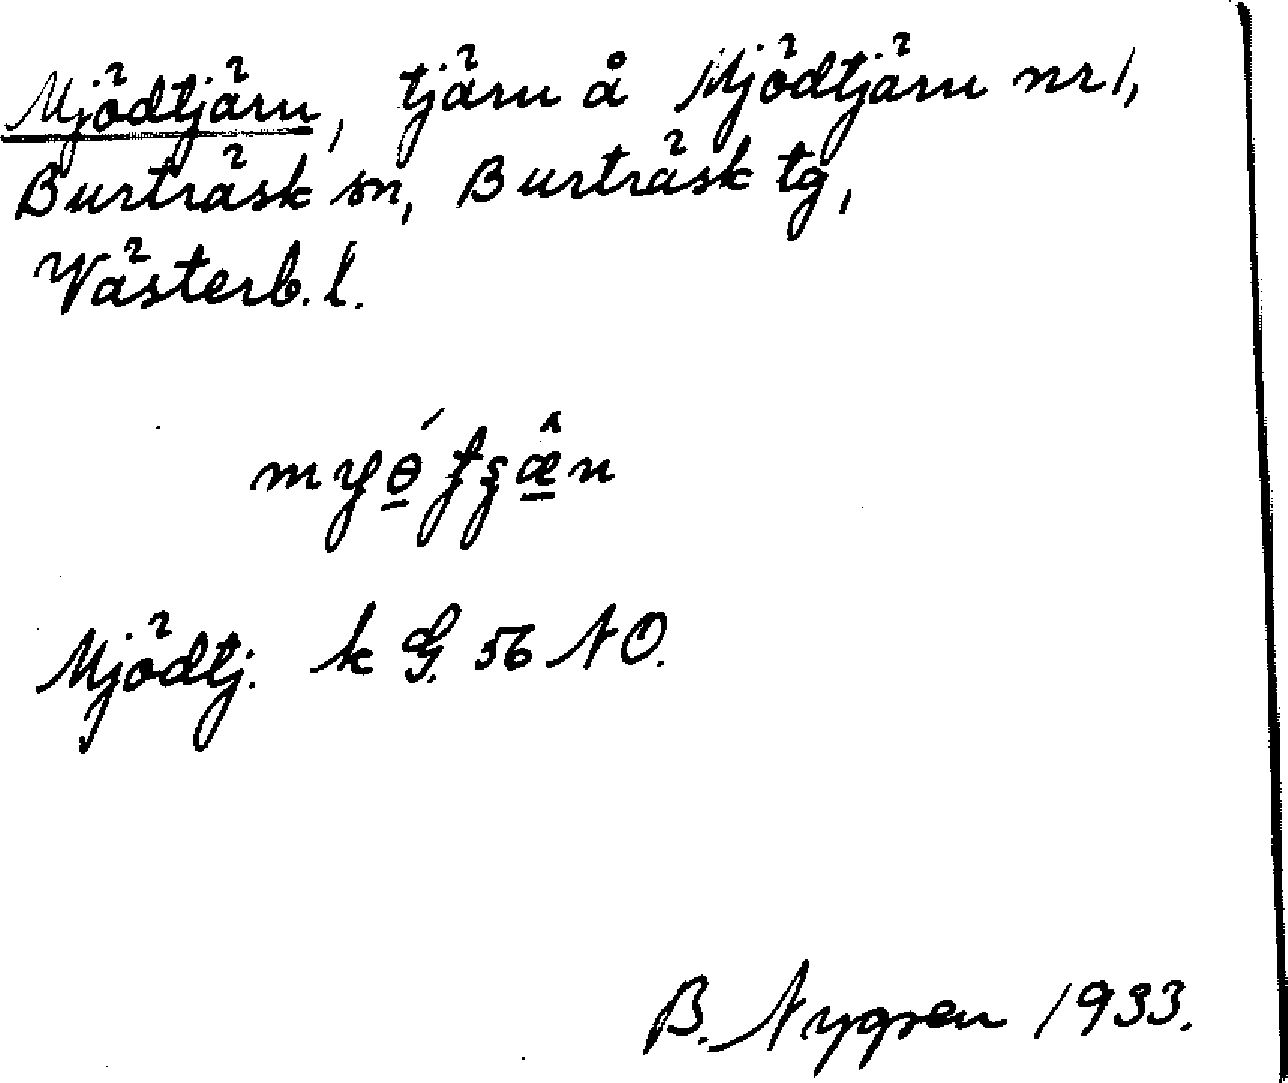 Mjödtjärn, tjärn å Mjödtjärn nr 1,
Burträsk sn, Burträsk tg,
Västerb. l.
Mjödtj. k G. 56 NO.
B. Nygren 1933.